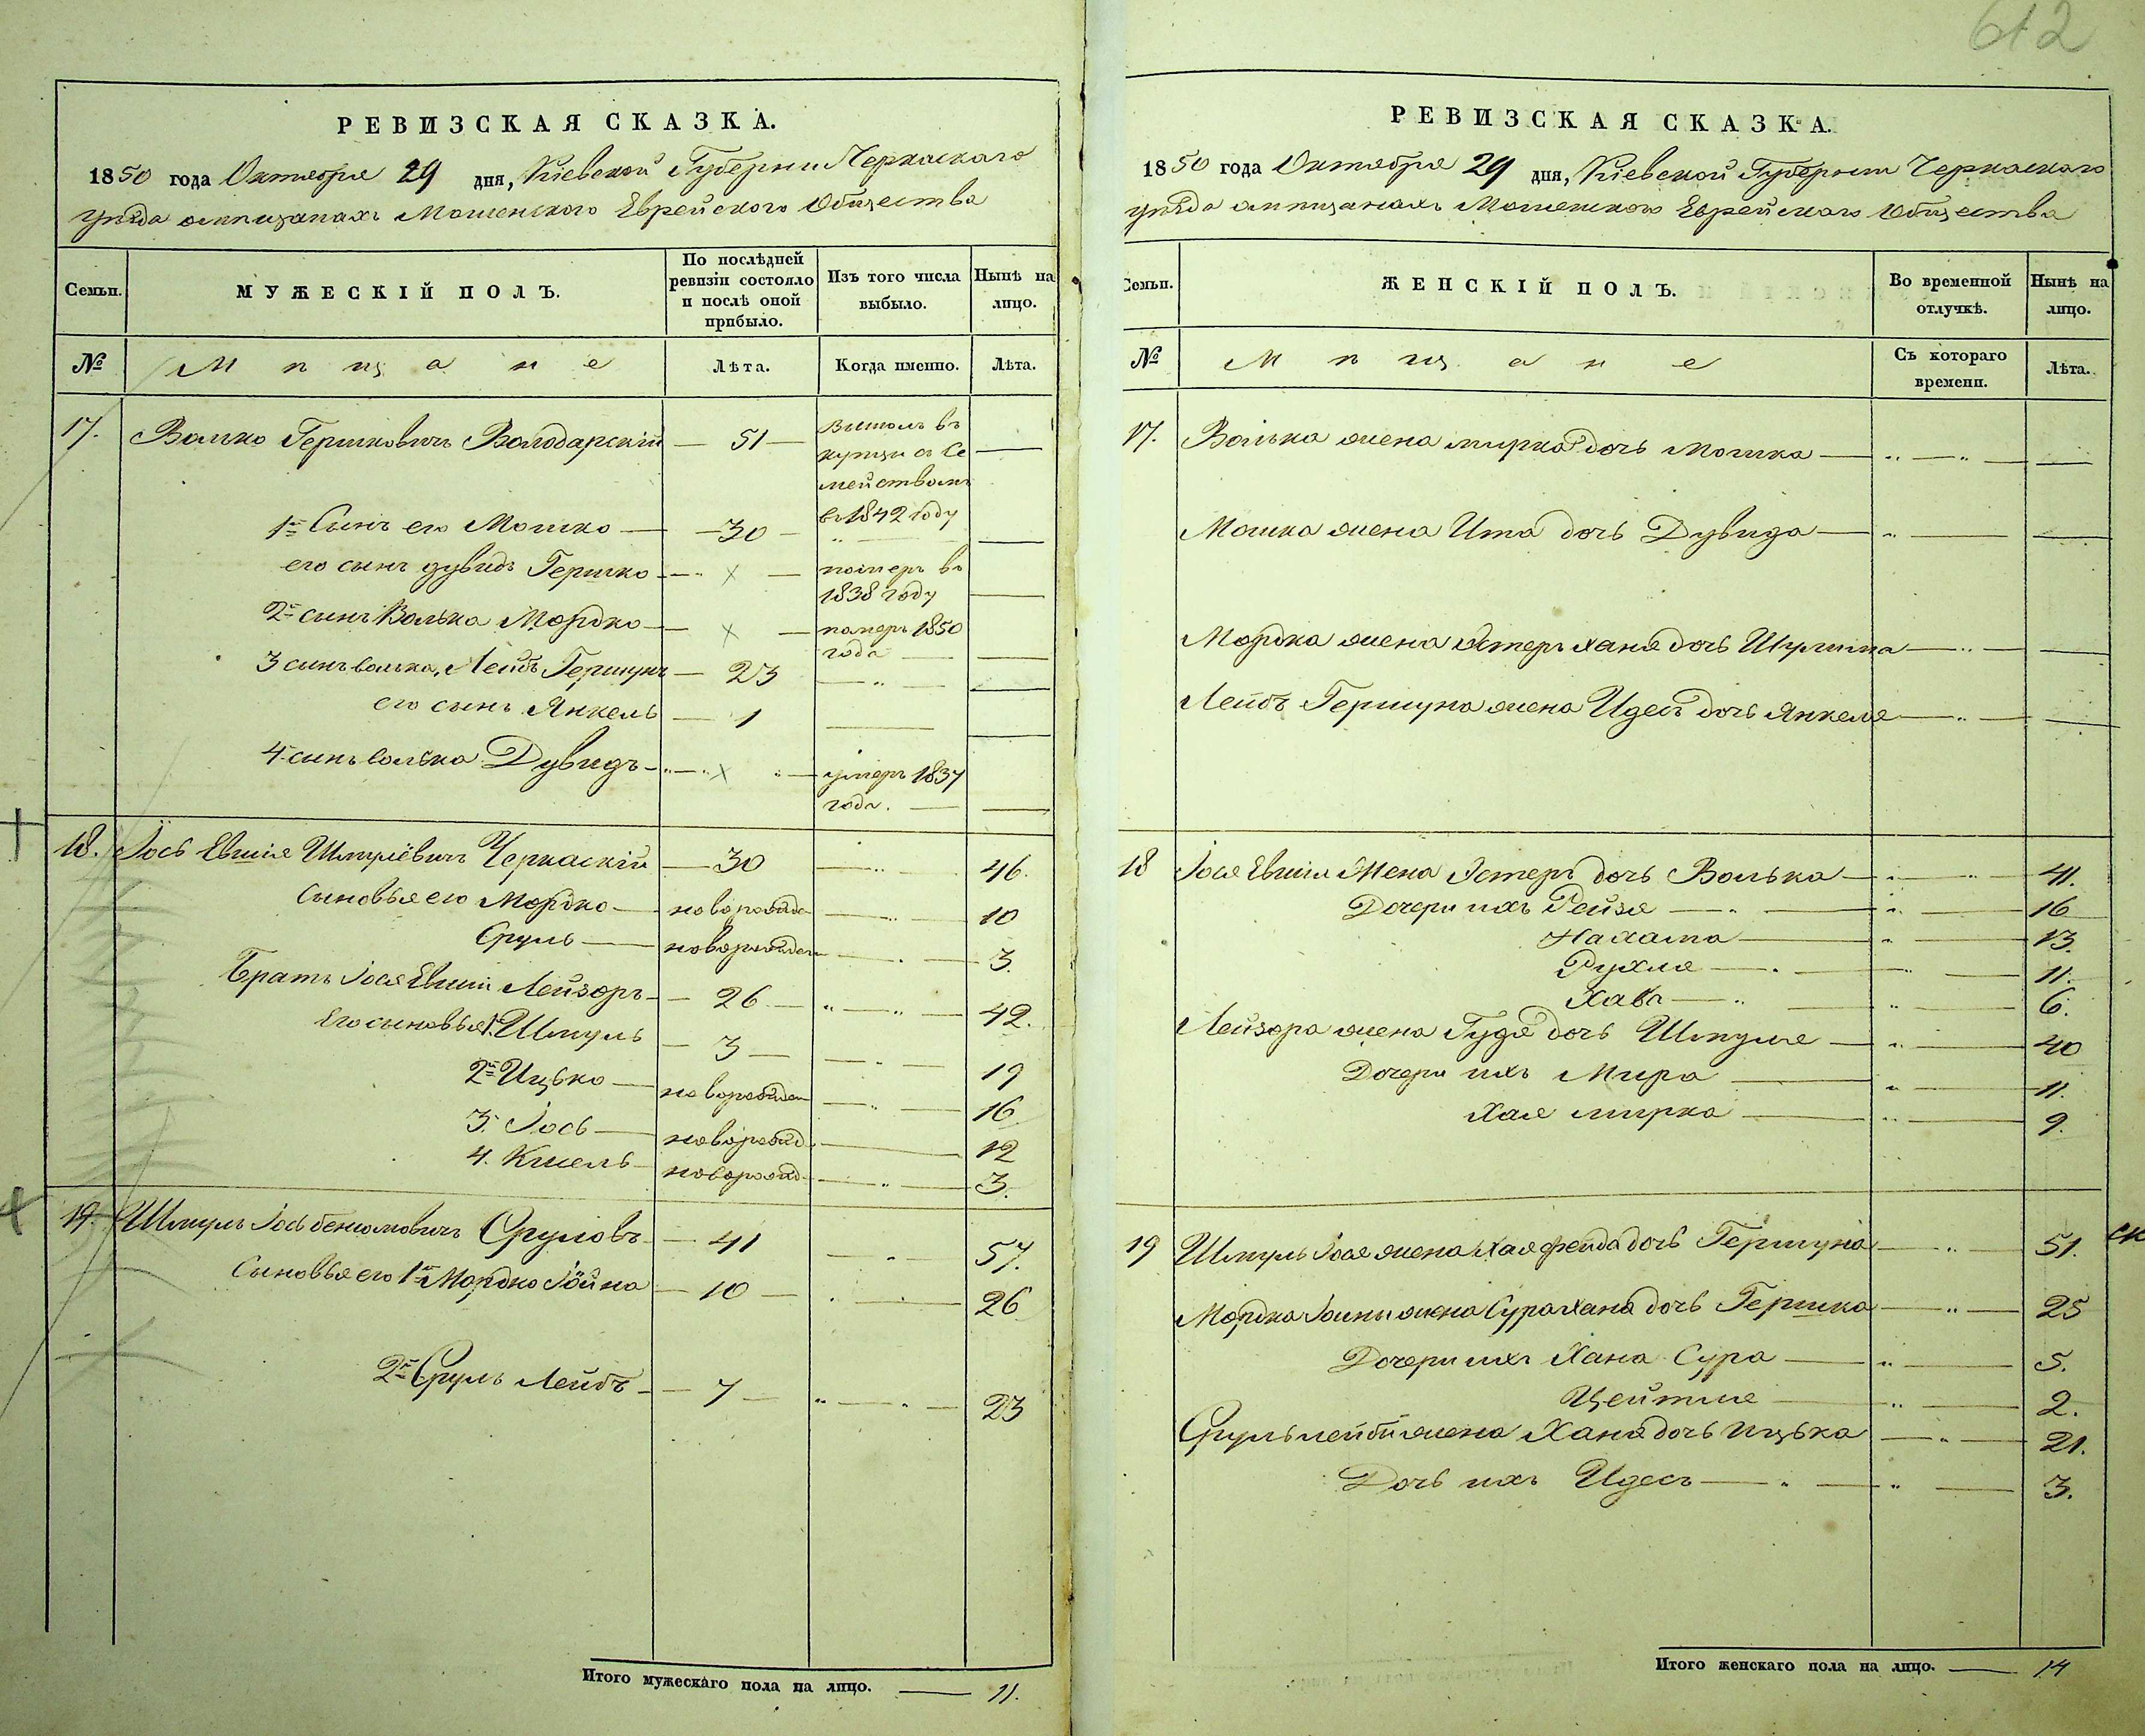 612
РЕВИЗСКАЯ СКАЗКА.
1850 года Октября 29 дня, Кіевской Губерніи Черкаскаго
уѣзда о мѣщанахъ Мошенского Еврейского Общества
Семьи.
МУЖЕСКІЙ ПОЛЪ.
По послѣдней ревизіи состояло и послѣ оной прибыло.
Изъ того числа выбыло.
Нынѣ на лицо.
№
Мѣщане
Лѣта.
Когда именно.
Лѣта.
17. Волько Гершковичъ Володарскій — 51 — Вышолъ въ
купцы съ Се
мействомъ
въ 1842 году
1й Сынъ его Мошко — 30 —
его сынъ дувидъ Гершко — х — померъ въ
1838 году
2й сынъ Волька Мордко — х — померъ 1850
года
3 сынъ волька, Лейбъ Гершунъ — 23 — "
его сынъ Янкель — 1
4 сынъ волька Дувидъ — х — умеръ 1837
года.
18. Іось Евшія Шмулёвичъ Черкаскій — 30 — 46.
Сыновья его Мордко — новорожде — 10
Сруль — новорожден — 3.
Братъ Іося Евшіи Лейзоръ — 26 — 42.
Его сыновья 1й Шмуль — 3 — 19
2й Ицько — новорожден — 16
3. Іось — новорожд — 12
4. Кисель — новорожд — 3.
19. Шмуль Іось бенюмовичъ Сруловъ — 41 — 57.
Сыновья его 1й Мордко Іойна — 10 — 26
2й Сруль Лейбъ — 7 — 23
Итого мужескаго пола на лицо. — 11.
РЕВИЗСКАЯ СКАЗКА.
1850 года Октября 29 дня, Кіевской Губерніи Черкаскаго
уѣзда о мѣщанахъ Мошенского Еврейскаго Общества
Семьи.
ЖЕНСКІЙ ПОЛЪ.
Во временной отлучкѣ.
Нынѣ на лицо.
№
Мѣщане
Съ котораго времени.
Лѣта.
17. Волька жена мирка дочь Мошка —
Мошка жена Ита дочь Дувида —
Мордка жена Эстеръ хана дочь Шулима —
Лейбъ Гершуна жена Идесъ дочь Янкеля —
18 Іося Евшіи Жена Эстеръ дочь Волька — 41.
Дочери ихъ Рейзя — 16
Нахама — 13.
Рухля — 11.
Хава — 6.
Лейзора жена Гудя дочь Шмуля — 40
Дочери ихъ Мира — 11.
Хая мирка — 9.
19 Шмуль Іося жена Хая фейда дочь Гершуна — 51.
Мордка Іойны жена Сура хана дочь Гершка — 25
Дочери ихъ Хана Сура — 5.
Цейтля — 2.
Сруль лейбы жена Хана дочь Ицька — 21.
Дочь ихъ Идесъ — 3.
Итого женскаго пола на лицо. — 14